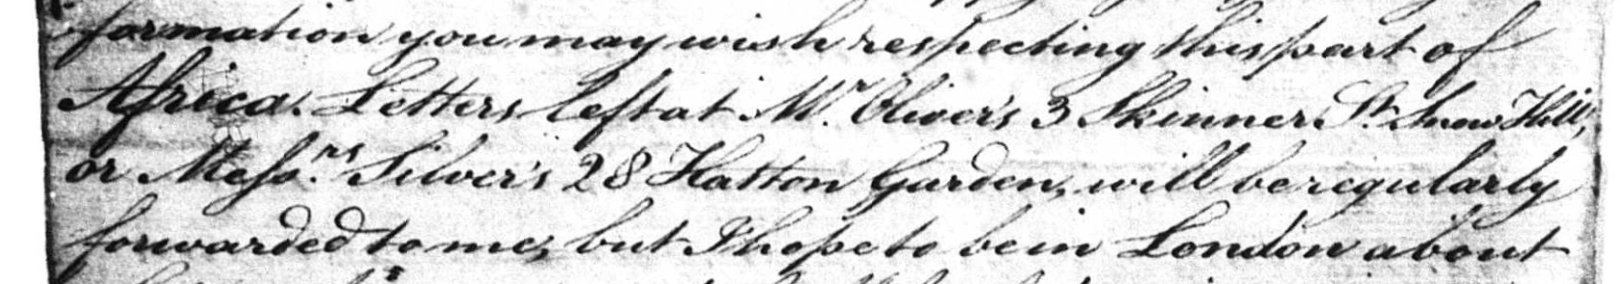 formation you may wish respecting this part of
Africa. Letters left at Mr. Oliver's 3 Skinner St. Snow Hill,
or Messrs. Silver's 28 Hatton Garden, will be regularly
forwarded to me, but I hope to be in London about